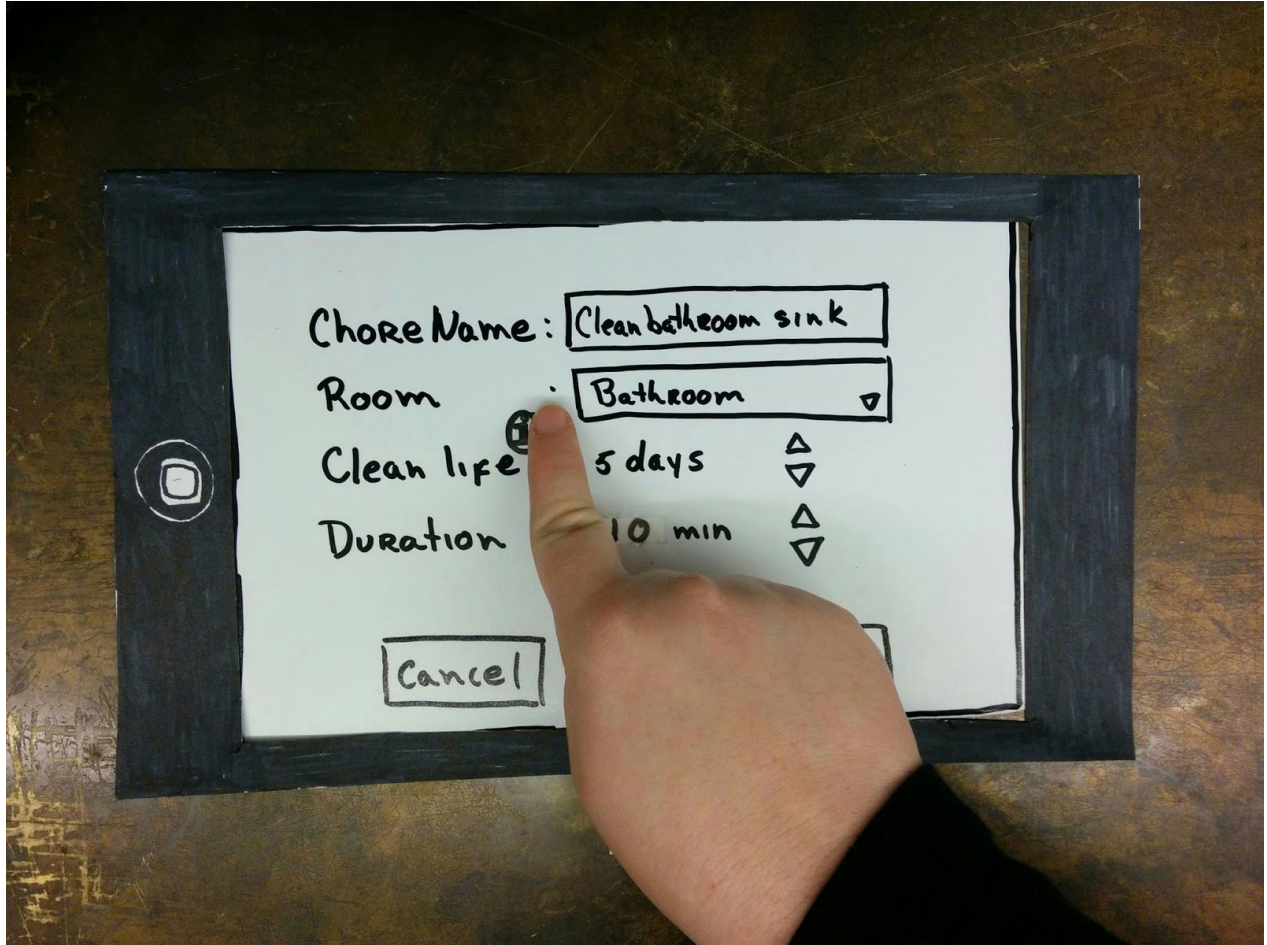 Chore Name: Clean bathroom sink
Room : Bathroom
Clean life 5 days
Duration 10 min
Cancel